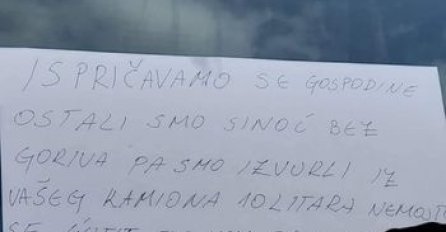 ISPRIČAVAMO SE GOSPODINE
OSTALI SMO SINOĆ BEZ
GORIVA PA SMO IZVURLI IZ
VAŠEG KAMIONA 10 LITARA NEMOJTE
SE